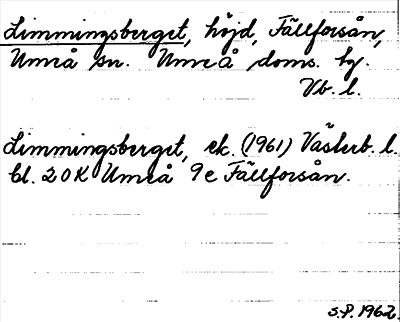 Limmingsberget, höjd, Fällforsån,
Umeå sn. Umeå doms. hg.
Vb. l.
Limmingsberget, ek. (1961) Västerb. l.
bl. 20 K Umeå 9 c Fällforsån.
S.P. 1962.